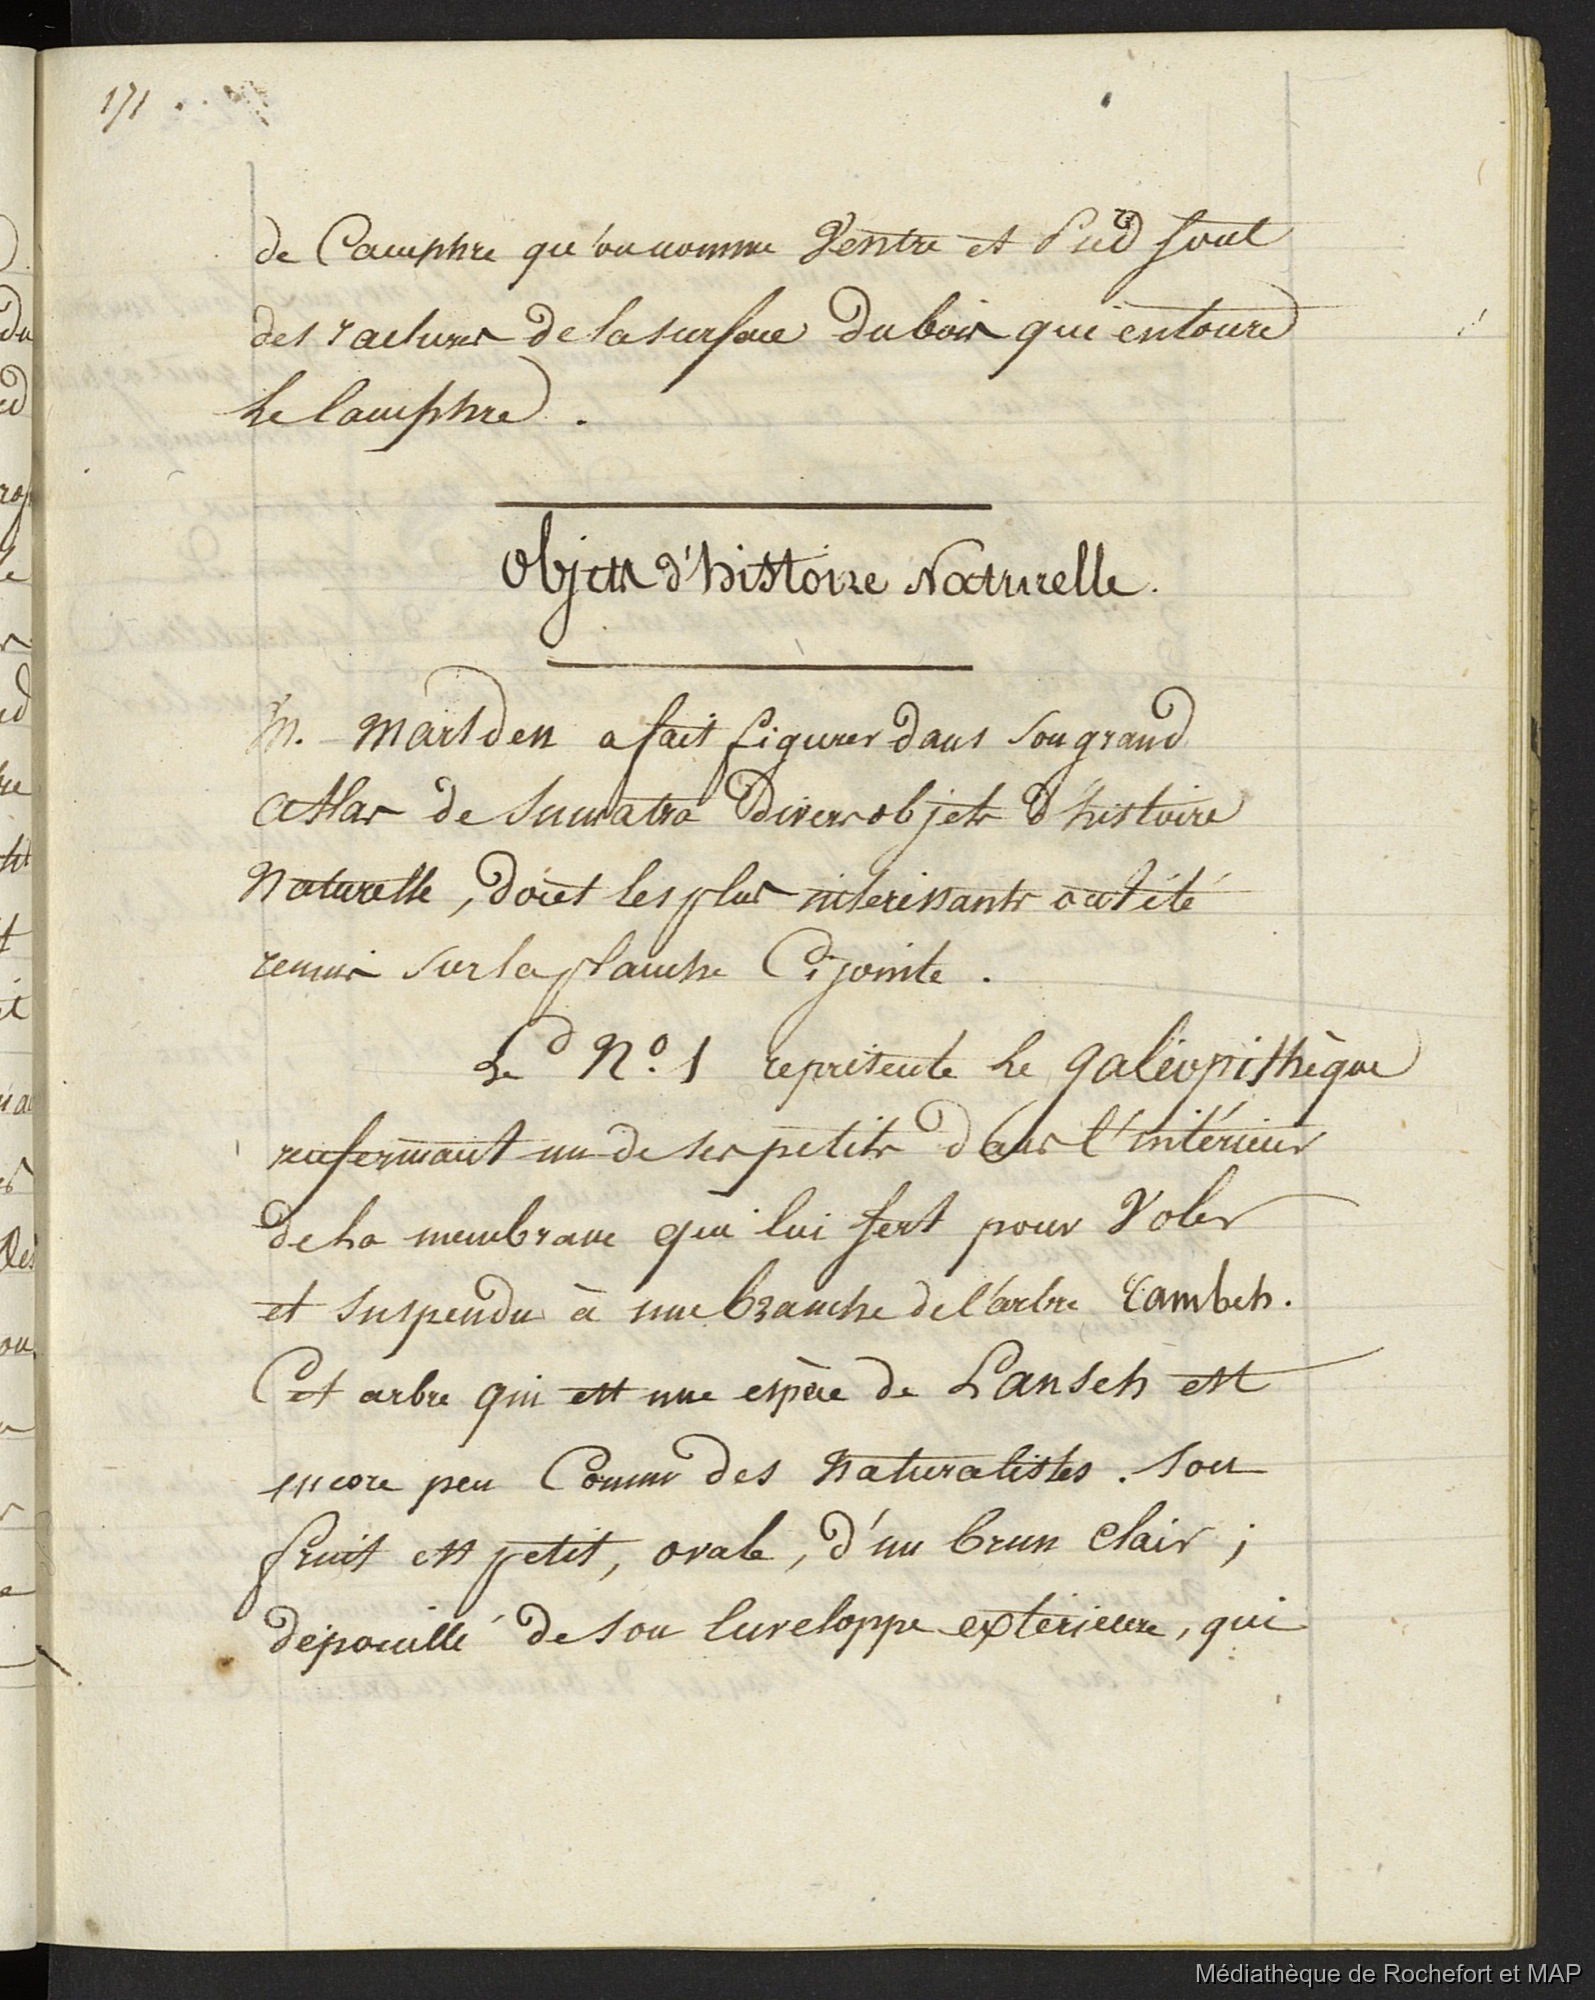 171
de Camphre qu'on nomme Ventre et Pied sont
des raclures de la surface du bois qui entoure
le Camphre.
Objets d'histoire Naturelle.
M. Marsden a fait figurer dans son grand
atlas de Sumatra divers objets d'histoire
Naturelle, dont les plus interessants ont été
remis sur la planche Ci jointe.
Le N.º 1 représente le galéopithèque
renfermant un de ses petits dans l'intérieur
de la membrane qui lui sert pour Voler
et suspendu à une branche de l'arbre Rambeh.
Cet arbre qui est une espèce de Lanseh est
encore peu Connu des Naturalistes. Son
fruit est petit, ovale, d'un brun clair;
dépouillé de son Enveloppe extérieure, qui
Médiathèque de Rochefort et MAP